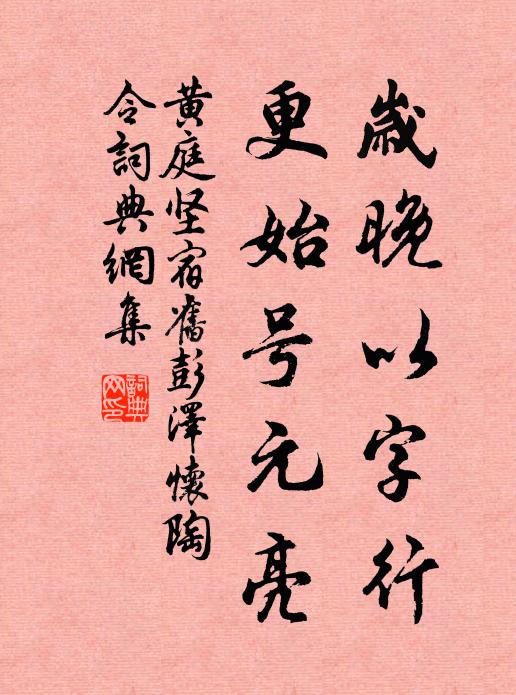 歲晚以字行
更始号元亮
黄庭坚宿舊彭澤懷陶
令詞典網集
詞典
网印